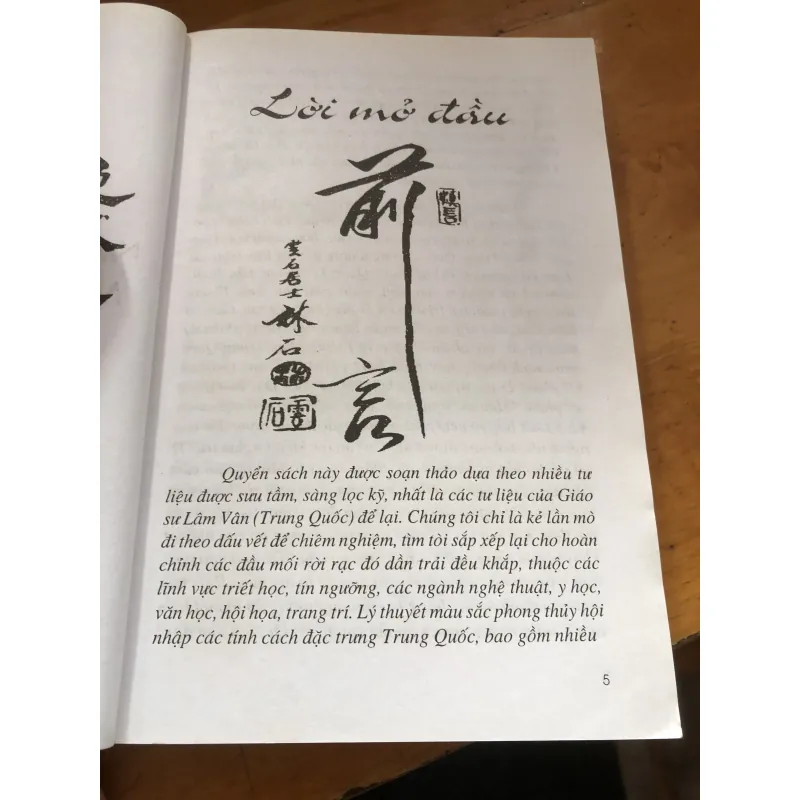 Lời mở đầu
前言
雲石居士
林石
Quyển sách này được soạn thảo dựa theo nhiều tư
liệu được sưu tầm, sàng lọc kỹ, nhất là các tư liệu của Giáo
sư Lâm Vân (Trung Quốc) để lại. Chúng tôi chỉ là kẻ lần mò
đi theo dấu vết để chiêm nghiệm, tìm tòi sắp xếp lại cho hoàn
chỉnh các đầu mối rời rạc đó dần trải đều khắp, thuộc các
lĩnh vực triết học, tín ngưỡng, các ngành nghệ thuật, y học,
văn học, hội họa, trang trí. Lý thuyết màu sắc phong thủy hội
nhập các tính cách đặc trưng Trung Quốc, bao gồm nhiều
5